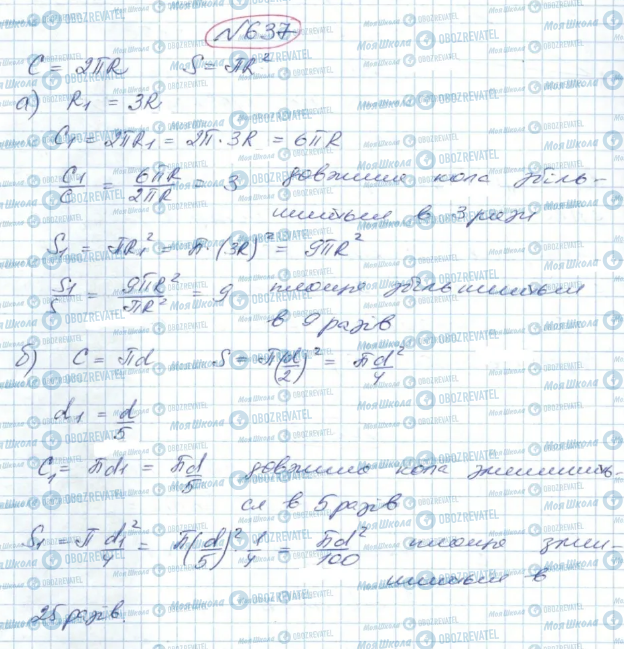 №637
C = 2πR S = πR²
а) R₁ = 3R
C₁ = 2πR₁ = 2π·3R = 6πR
C₁/C = 6πR/2πR = 3 довжина кола збіль-
шиться в 3 рази
S₁ = πR₁² = π·(3R)² = 9πR²
S₁/S = 9πR²/πR² = 9 площа збільшиться
в 9 разів
б) C = πd S = π(d/2)² = πd²/4
d₁ = d/5
C₁ = πd₁ = πd/5 довжина кола зменшить-
ся в 5 разів
S₁ = πd₁²/4 = π(d/5)² 1/4 = πd²/100 площа змен-
шиться в
25 разів.
Моя Школа OBOZREVATEL